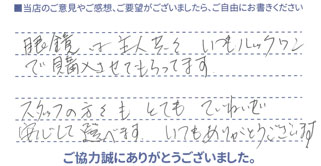 ■当店のご意見やご感想、ご要望がございましたら、ご自由にお書きください
眼鏡は主人共々いつもルックワン
で購入させてもらってます
スタッフの方々もとてもていねいで
安心して選べます。いつもありがとうございます
ご協力誠にありがとうございました。